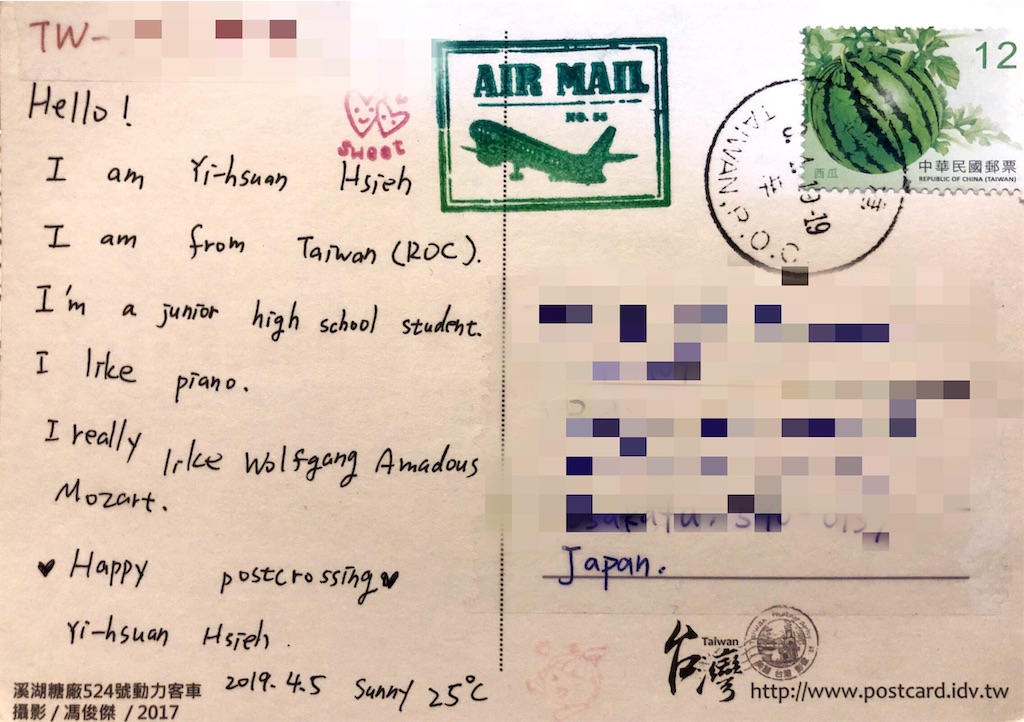 TW-
Hello!
I am Yi-hsuan Hsieh
I am from Taiwan (ROC).
I'm a junior high school student.
I like piano.
I really like Wolfgang Amadous
Mozart.
♥ Happy postcrossing ♥
Yi-hsuan Hsieh.
2019.4.5 Sunny 25°C
溪湖糖廠524號動力客車
攝影 / 馮俊傑 / 2017
sweet
AIR MAIL
NO. 56
12
西瓜
中華民國郵票
REPUBLIC OF CHINA (TAIWAN)
TAIWAN R.O.C.
Japan.
台灣
Taiwan
http://www.postcard.idv.tw